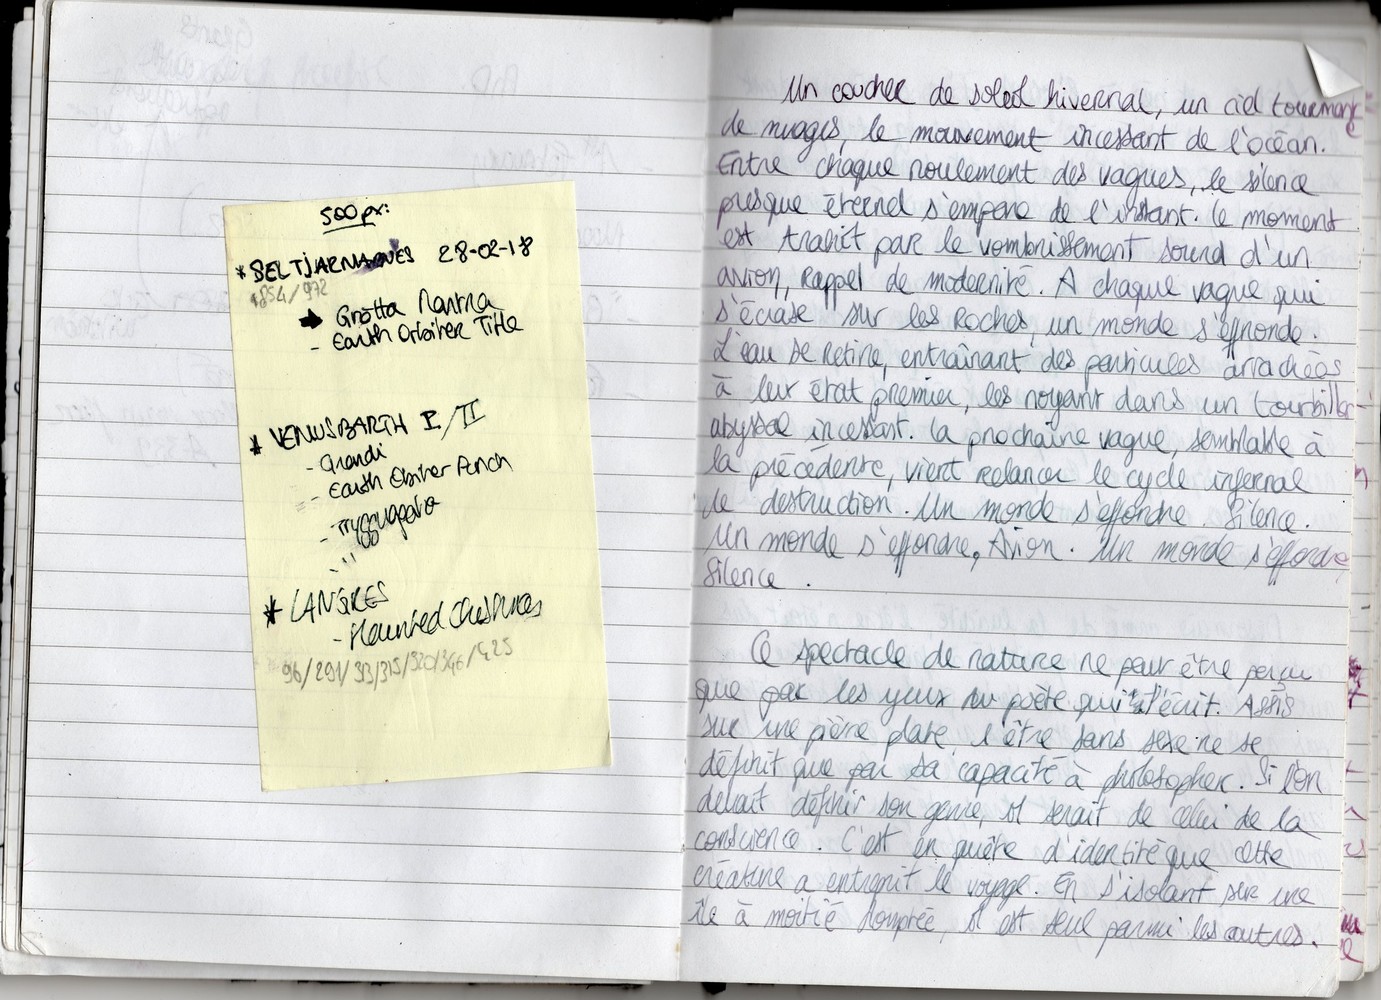 500px:
* SELTJARNARNES 28-02-18
1854/972
→ Grotta Mantra
- Earth Orbiter Title
* VENUSBARTH I/II
- Grandi
- Earth Orbiter Perch
-
- '' '
* LANGRES
- Haunted Cheshires
96/291/33/315/320/346/425
Un coucher de soleil hivernal, un ciel tourmenté
de nuages, le mouvement incessant de l'océan.
Entre chaque roulement des vagues, le silence
presque éternel s'empare de l'instant. Le moment
est trahit par le vombrissement sourd d'un
avion, rappel de modernité. A chaque vague qui
s'écrase sur les roches, un monde s'effondre.
L'eau se retire, entraînant des particules arrachées
à leur état premier, les noyant dans un tourbillon
abyssal incessant. La prochaine vague, semblable à
la précédente, vient relancer le cycle infernal
de destruction. Un monde s'effondre. Silence.
Un monde s'effondre, Avion. Un monde s'effondre
Silence.
Ce spectacle de nature ne peut être perçu
que par les yeux du poète qui l'écrit. Assis
sur une pierre plate, l'être sans sexe ne se
définit que par sa capacité à philosopher. Si l'on
devait définir son genre, il serait de celui de la
conscience. C'est en quête d'identité que cette
créature a entreprit le voyage. En s'isolant sur une
île à moitié domptée, il est seul parmi les autres.